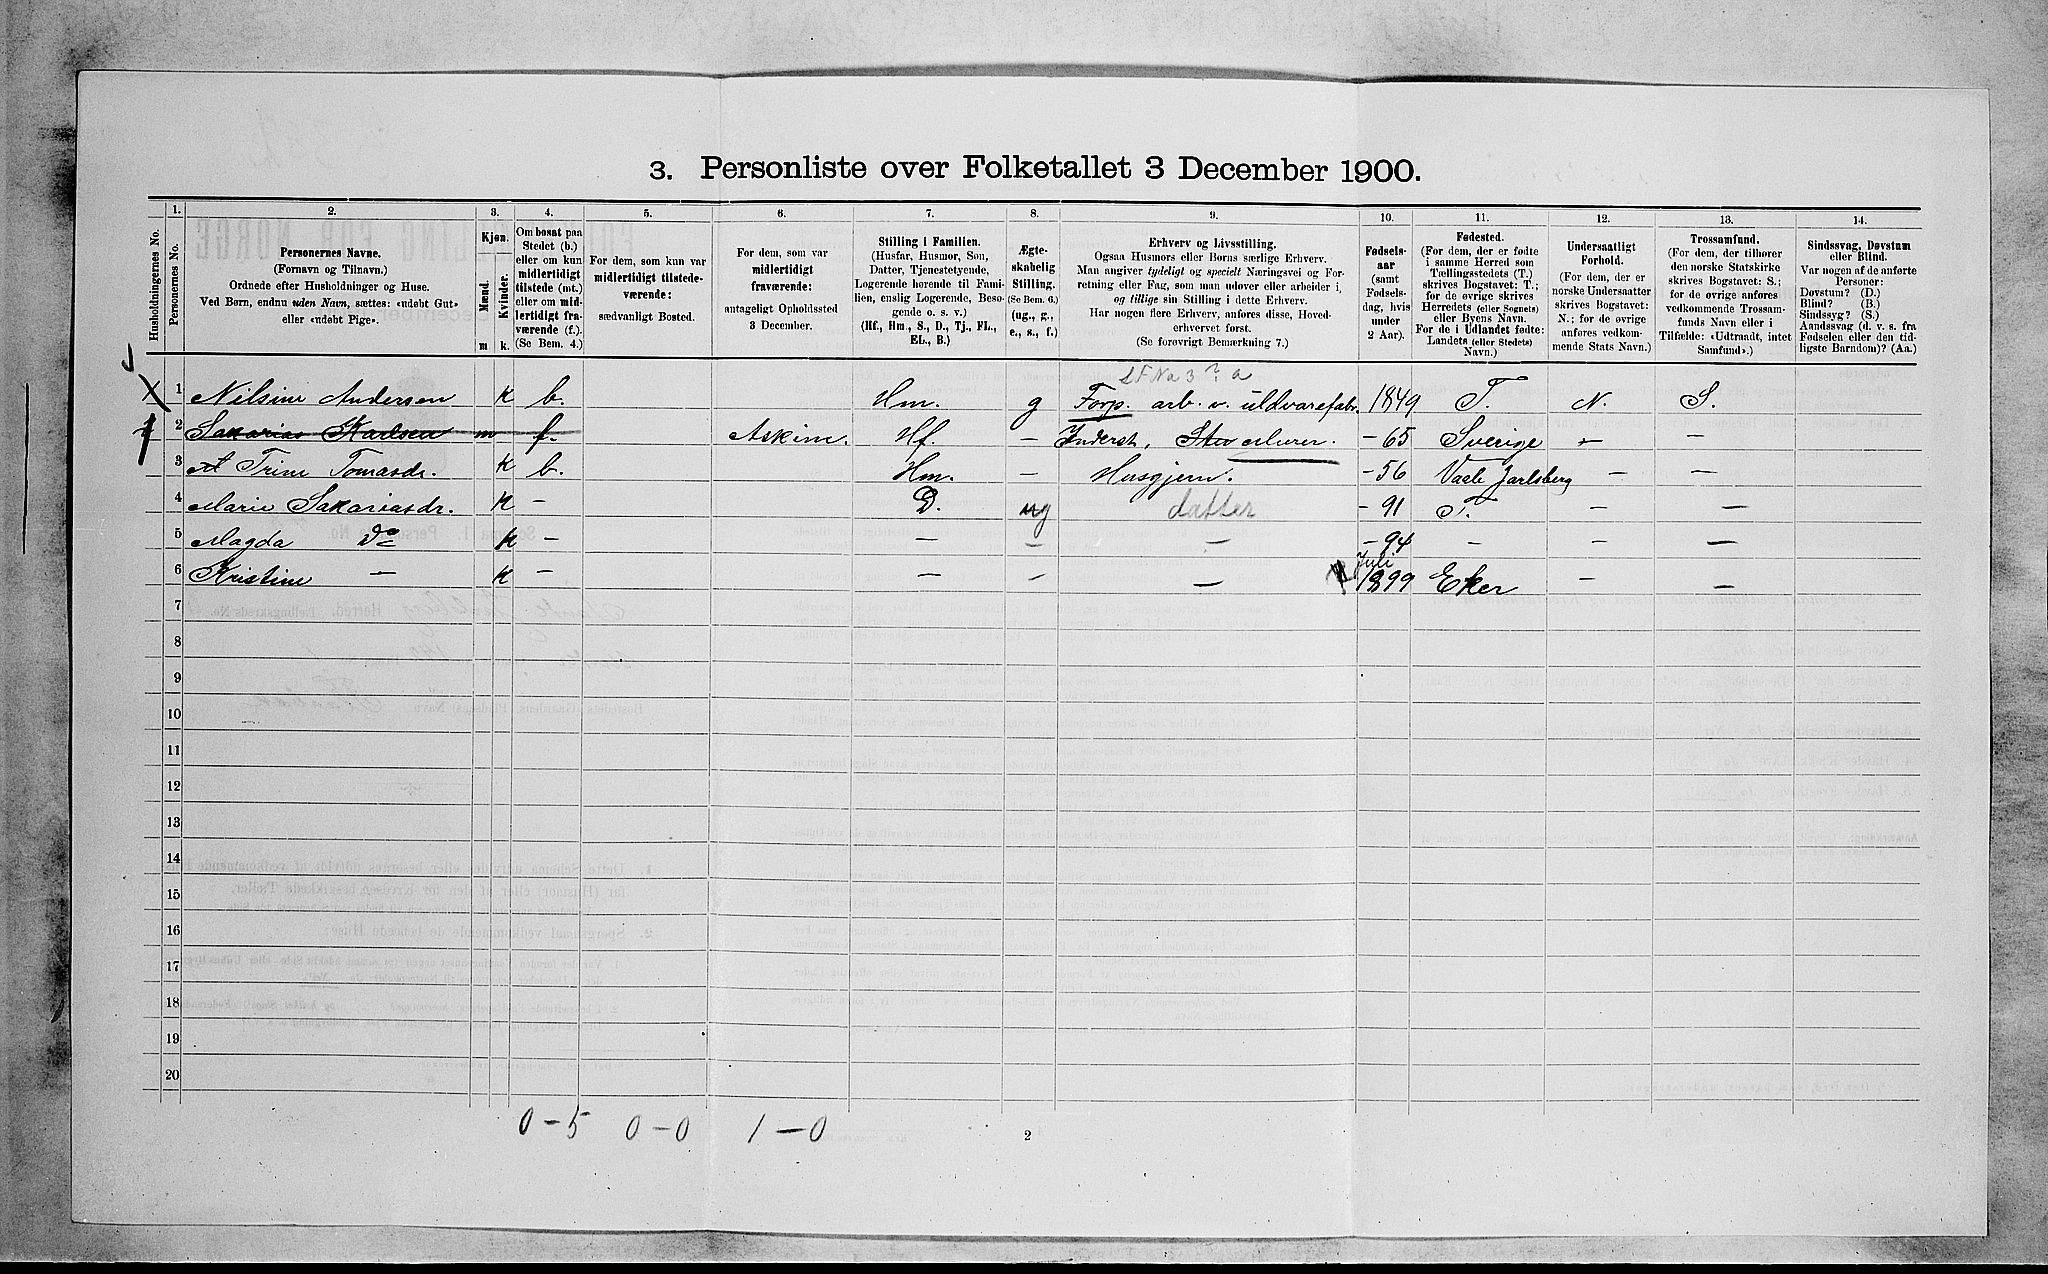 3. Personliste over Folketallet 3 December 1900.
1. 2. 3. 4. 5. 6. 7. 8. 9. 10. 11. 12. 13. 14.
Husholdningernes No.
Personernes No.
Personernes Navne.
(Fornavn og Tilnavn.)
Ordnede efter Husholdninger og Huse.
Ved Børn, endnu uden Navn, sættes: «udøbt Gut»
eller «udøbt Pige».
Kjøn.
Mænd.
Kvinder.
m k.
Om bosat paa
Stedet (b.)
eller om kun
midlertidigt
tilstede (mt.)
eller om mid-
lertidigt fra-
værende (f.).
(Se Bem. 4.)
For dem, som kun var
midlertidigt tilstede-
værende:
sædvanligt Bosted.
For dem, som var
midlertidigt
fraværende:
antageligt Opholdssted
3 December.
Stilling i Familien.
(Husfar, Husmor, Søn,
Datter, Tjenestetyende,
Logerende hørende til Fami-
lien, enslig Logerende, Besø-
gende o. s. v.)
(Hf., Hm., S., D., Tj., FL.,
EL., B.)
Ægte-
skabelig
Stilling.
(Se Bem. 6.)
(ug., g.,
e., s., f.)
Erhverv og Livsstilling.
Ogsaa Husmors eller Børns særlige Erhverv.
Man angiver tydeligt og specielt Næringsvei og For-
retning eller Fag, som man udøver eller arbeider i,
og tillige sin Stilling i dette Erhverv.
Har nogen flere Erhverv, anføres disse, Hoved-
erhvervet først.
(Se forøvrigt Bemærkning 7.)
Fødsels-
aar
(samt
Fødsels-
dag, hvis
under
2 Aar).
Fødested.
(For dem, der er fødte
i samme Herred som
Tællingsstedets (T.)
skrives Bogstavet: T.;
for de øvrige skrives
Herredets (eller Sognets)
eller Byens Navn.
For de i Udlandet fødte:
Landets (eller Stedets)
Navn.)
Undersaatligt
Forhold.
(For dem, der er
norske Undersaatter
skrives Bogstavet:
N.; for de øvrige
anføres vedkom-
mende Stats Navn.)
Trossamfund.
(For dem, der tilhører
den norske Statskirke
skrives Bogstavet: S.;
for de øvrige anføres
vedkommende Trossam-
funds Navn eller i
Tilfælde: «Udtraadt, intet
Samfund».)
Sindssvag, Døvstum
eller Blind.
Var nogen af de anførte
Personer:
Døvstum? (D.)
Blind? (B.)
Sindssyg? (S.)
Aandssvag (d. v. s. fra
Fødselen eller den tid-
ligste Barndom)? (Aa.)
1 Nilsine Andersen k b. Hm. g Forp. arb. v. uldvarefabr. 1849 T. N. S.
2 Sakarias Karlsen m f. Askim. Hf. — Inderst, Murer. — 65 Sverige — —
3 Trine Tomasdr. k b. Hm. — Husgjern. — 56 Vaale Jarlsberg — —
4 Marie Sakariasdr. k — D. ug datter — 91 T. — —
5 Magda Do k — — — — — 94 — — —
6 Kristine — k — — — — Juli 1899 Eker — —
7
8
9
10
11
12
13
14
15
16
17
18
19
20
0 – 5 0 – 0 1 – 0
2